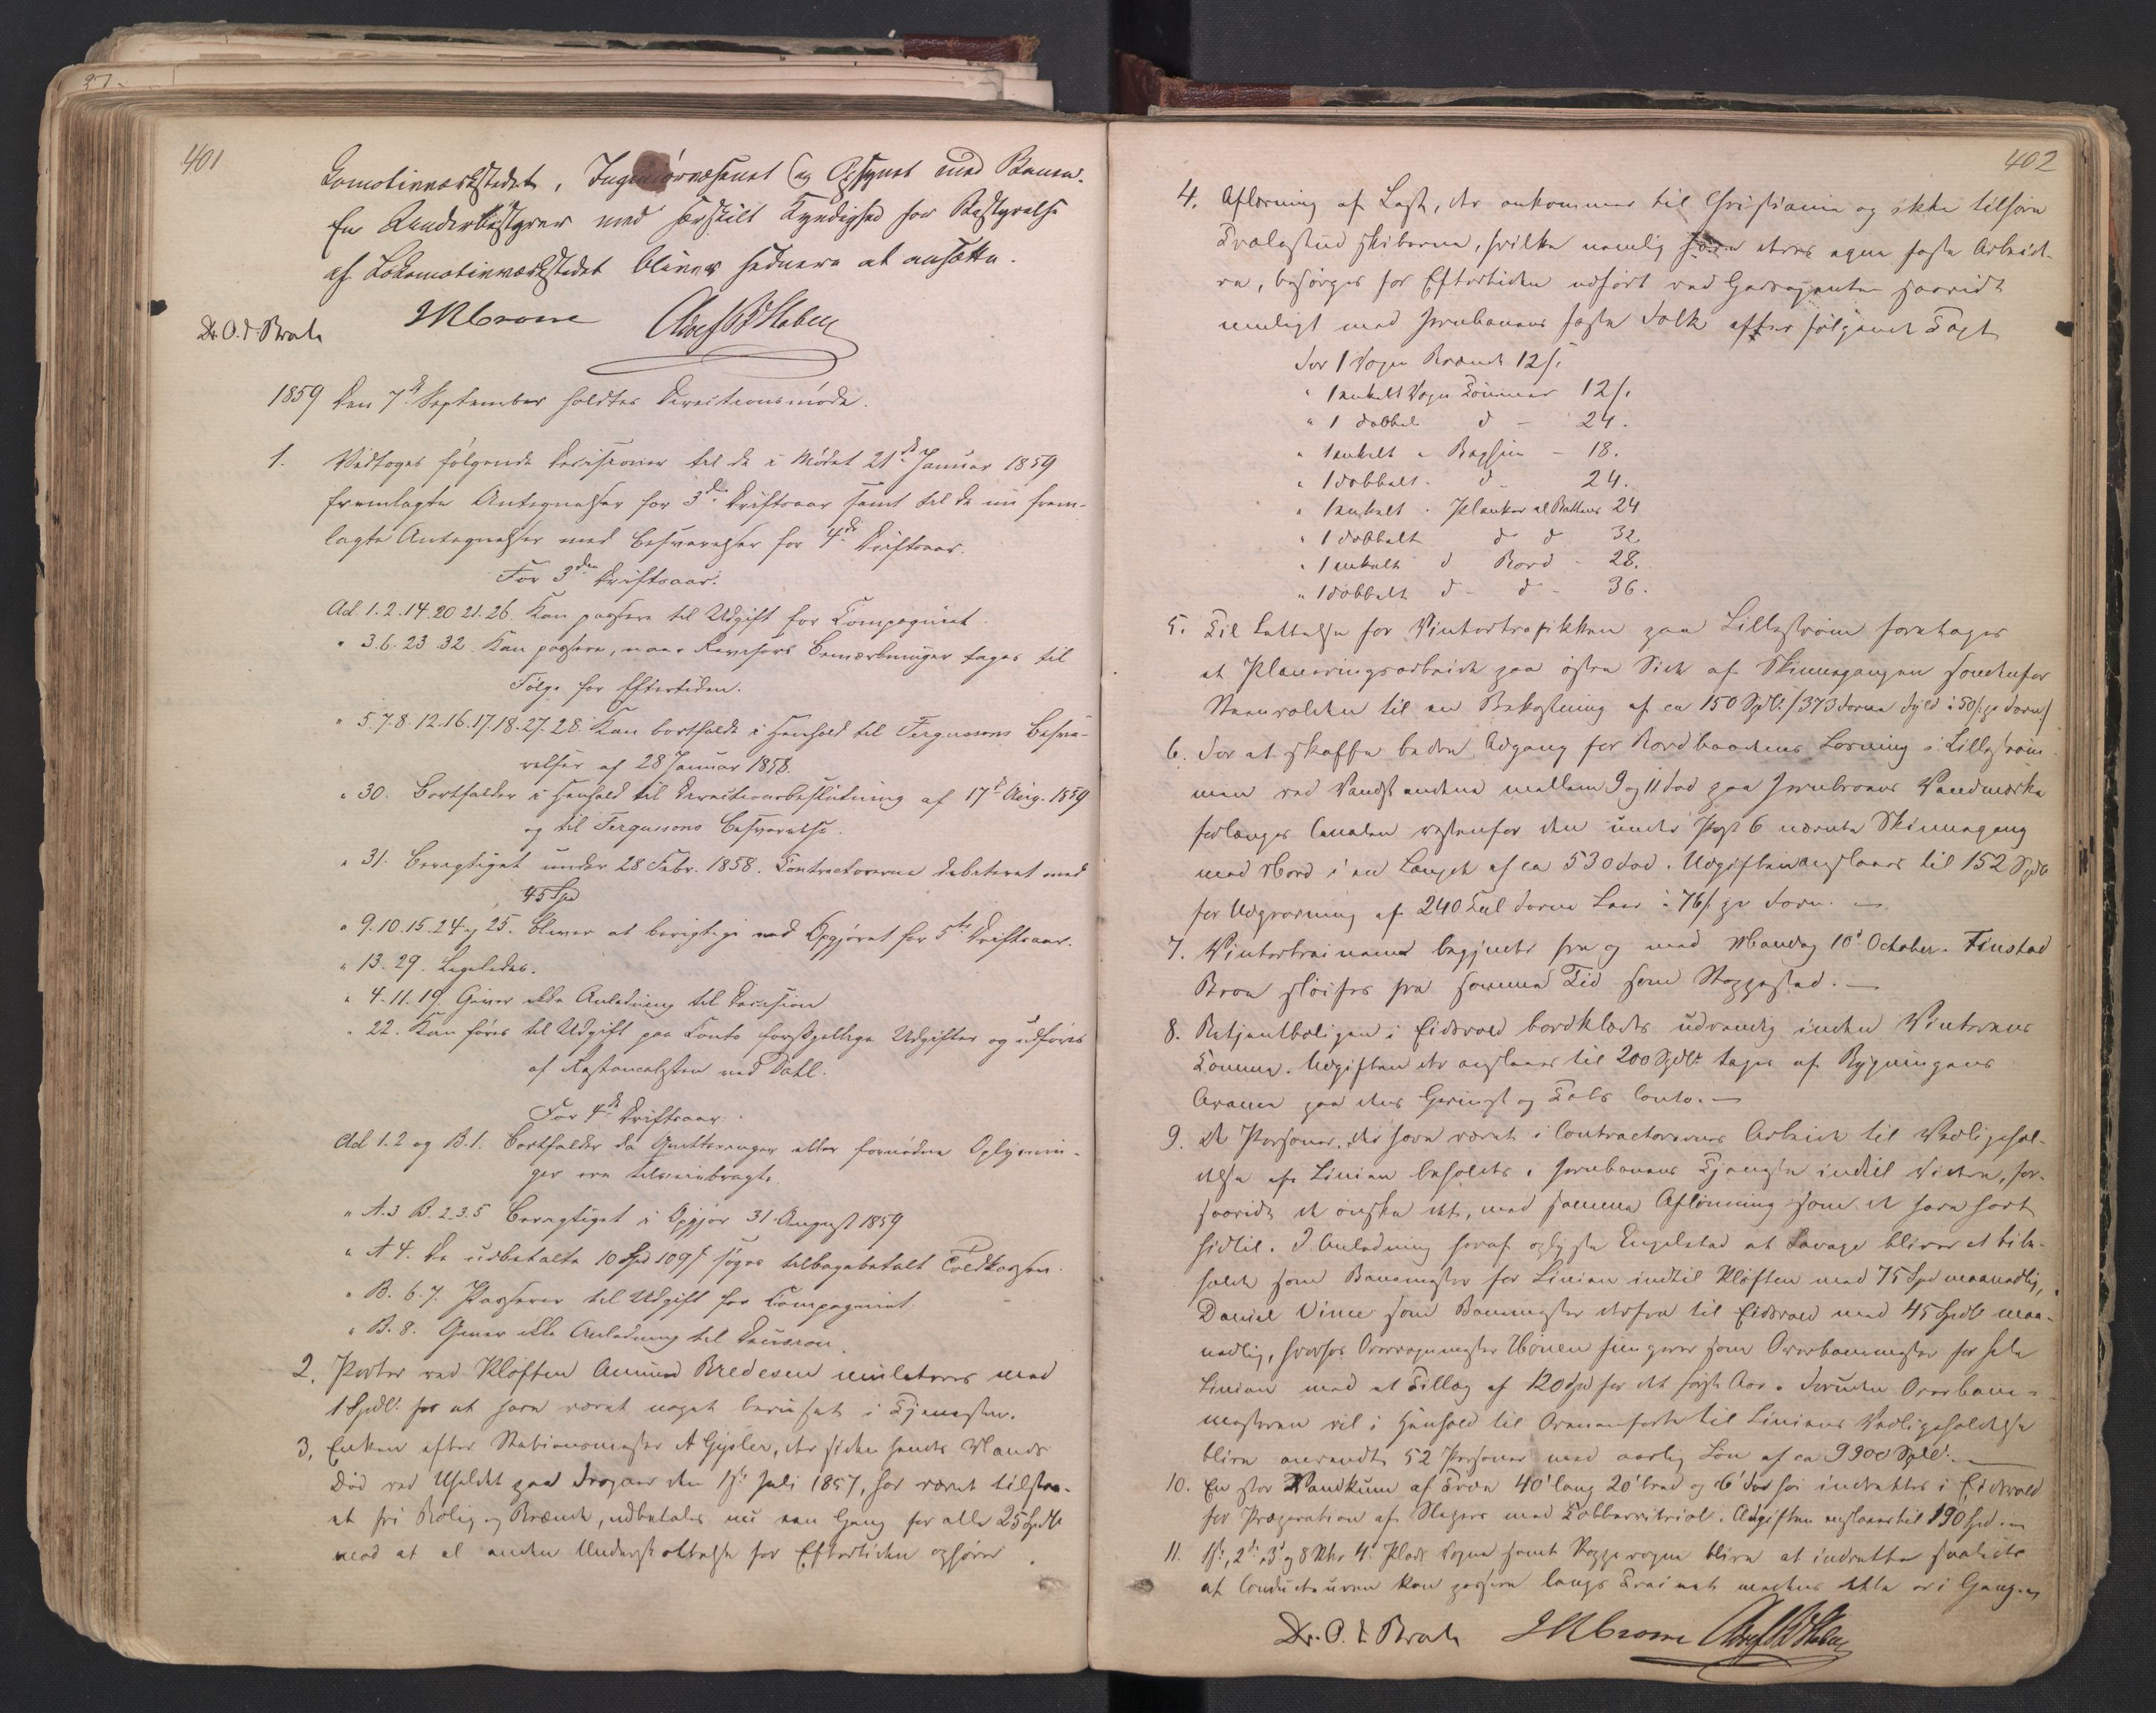 401
Lomotivværkstedet, Ingeniørvæsenet og Opsynet med Banen.
En Underbestyrer med særskilt Kyndighed for Bestyrelse
af Lokomotivværkstedet bliver sednere at ansætte.
1859 Den 7de September holdtes Directionsmöde.
1. Vedtoges følgende Decisioner til de i Mödet 21de Januar 1859
fremlagte Antegnelser for 3de Driftsaar samt til de nu frem-
lagte Antegnelser med Besvarelser for 4de Driftsaar.
For 3die Driftsaar.
Ad. 1. 2. 14. 20 21. 26. Kan passere til Udgift for Compagniet.
" 3. 6. 23 32. Kan passere, naar Revisors Bemærkninger tages til
Følge for Eftertiden.
" 5. 7. 8. 12. 16. 17. 18. 27. 28. Kan bortfalde i Henhold til Fergussons Besva-
relser af 28 Januar 1858.
" 30. Bortfalder i Henhold til Directionsbeslutning af 17de Aug. 1859
og til Fergussons Besvarelse.
" 31. Berigtiget under 28 Febr. 1858. Contractorerne debiteret med
45 Spd
" 9. 10. 15. 24 og 25. Bliver at berigtige ved Opgjøret for 5te Driftsaar.
" 13. 29. Ligeledes.
" 4. 11. 19. Giver ikke Anledning til Decision
" 22. Kan føres til Udgift paa Conto forskjellige Udgifter og udføres
af Restancelisten ved Dahl.
For 4de Driftsaar.
Ad 1. 2 og B. 1. Bortfalder da Qvitteringer eller fornødne Oplysnin-
ger ere tilveiebragte.
" A. 3 B. 2. 3. 5 Berigtiget i Opgjør 31 August 1859
" A 4. De udbetalte 10 Spd 109 s søges tilbagebetalt Toldkassen.
" B. 6. 7. Passerer til Udgift for Compagniet.
" B. 8. Giver ikke Anledning til Decision.
2. Porter ved Kløften Amund Bredesen mulcteres med
1 Spdl. for at have været noget beruset i Tjenesten.
3. Enken efter Stationsmester A Gysler, der siden hendes Mands
Død ved Uheldet paa Frogner den 1ste Juli 1857, har været tilstaa-
et fri Bolig og Brænde, udbetales nu een Gang for alle 25 Spdlr
mod at al anden Understøttelse for Eftertiden ophører.
402
4. Aflæsning af Last, der ankommer til Christiania og ikke tilhører
Trælastud skiberne, hvilke nemlig have deres egne faste Arbeid-
re, besørges for Eftertiden udført ved saavidt
muligt med Jernbanens faste Folk efter følgende Taxt
For 1 Vogn Brænde 12 s.
" 1 enkelt Vogn Tömmer 12 s.
" 1 dobbel d - 24.
" 1 enkelt " Baghun - 18.
" 1 dobbelt. d - 24.
" 1 enkelt . Planker el Battens 24
" 1 dobbelt d d 32
" 1 enkelt d Bord - 28.
" 1 dobbelt d - d - 36.
5. Til Lettelse for Vintertrafikken paa Lillestrøm foretages
et Planeringsarbeide paa østre Side af Skinnegangen søndenfor
til en Bekostning af ca 150 Spdl. / 373 Favne Fyld à 50 s. pr Favn /
6. For at skaffe bedre Adgang for Bordbaadenes Losning i Lillestrøm
men ved Vandstandene mellem 9 og 11 Fod paa Jernbroens Vandmærke
forlænges Canalen vestenfor den under Post 6 nævnte Skinnegang
mod Nord i en Længde af ca 530 Fod. Udgiften anslaaes til 152 Spdl
for Udgravning af 240 Cub Favne Leer à 76 s. pr Favn. —
7. Vintertrainene begynder fra og med Mandag 10de October. Finstad
Broen sløifes fra samme Tid som Stoppested. —
8. Betjentboligen i Eidsvold bordklædes udvendig inden Vinterens
Komme. Udgiften der anslaaes til 200 Spdlr tages af Bygningens
paa dens Gevinst og Tabs Conto. —
9. De Personer, der have været i Contractorernes Arbeide til Vedligehol-
delse af Linien beholdes i Jernbanens Tjeneste indtil videre, for-
saavidt de ønske det, med samme Aflønning som de have havt
hidtil. I Anledning heraf oplyste Engelstad at Savage bliver at bibe-
holde som Banemester for Linien indtil Kløften med 75 Spd maanedlig,
Daniel Vince som Banemester derfra til Eidsvold med 45 Spdl maa-
nedlig, hvorhos Overvognmester Hönen fungerer som Overbanemester for hele
Linien med et Tillæg af 120 Spd for det første Aar. Foruden Overbane-
mesteren vil i Henhold til Ovenanførte til Liniens Vedligeholdelse
blive anvendt 52 Personer med aarlig Løn af ca 9900 Spdl. —
10. En stor Vandkum af Træ 40' lang 20' bred og 6' høi indrettes i Eidsvold
for Præparation af Slepers med Kobbervitriol. Udgiften anslaaes til 190 Spd. —
11. 1ste, 2de, 3de og 8 Nr 4. Plads Vogne samt blive at indrette saaledes
at Conducteuren kan passere langs Trainet medens dette er i Gang. —